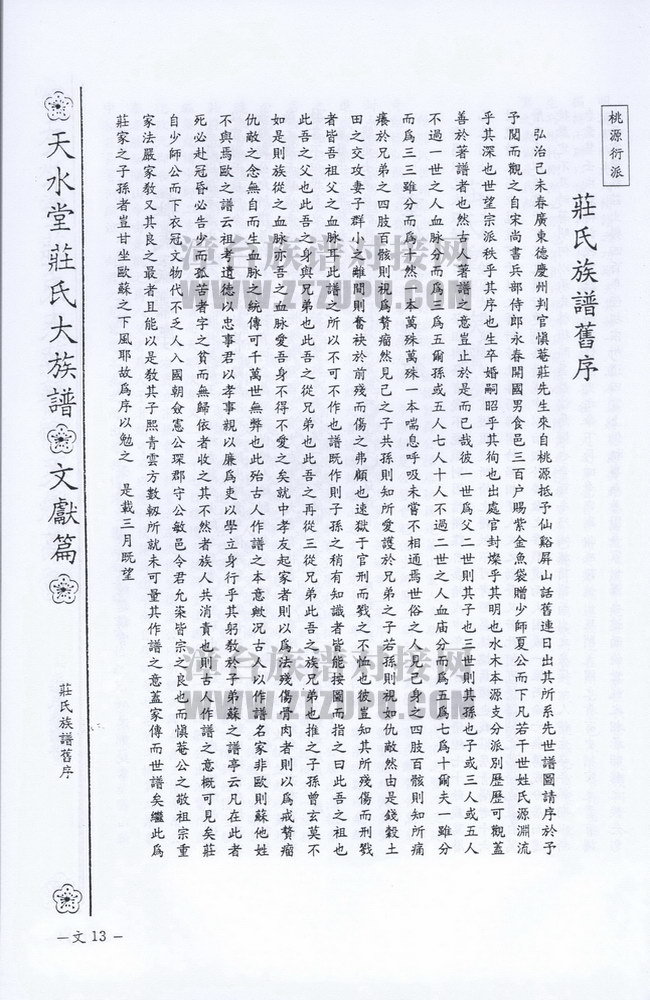 桃源衍派
莊氏族譜舊序
弘治己未春廣東德慶州判官慎菴莊先生來自桃源抵予仙谿屏山話舊連日出其所系先世譜圖請序於予
予閱而觀之自宋尚書兵部侍郎永春開國男食邑三百户賜紫金魚袋贈少師夏公而下凡若干世姓氏源淵流
乎其深也世望宗派秩乎其序也生卒婚嗣昭乎其徇也出處官封燦乎其明也水木本源支分派別歷歷可觀蓋
善於著譜者也然古人著譜之意豈止於是而已哉彼一世為父二世則其子也三世則其孫也子或三人或五人
不過一世之人血脉分而爲三爲五爾孫或五人七人十人不過二世之人血庙分而爲五爲七爲十爾夫一雖分
而爲三三雖分而爲十然十本萬殊萬殊一本喘息呼吸未嘗不相通焉世俗之人見己身之四肢百骸則知所痛
癢於兄弟之四肢百骸則視爲贅瘤然見己之子共孫則知所愛護於兄弟之子若孫則視如仇敵然由是錢穀土
田之交攻妻子群小之離間則奮袂於前殘而傷之弗顧也速獄于官刑而戮之不恤也彼豈知其所殘傷而刑戮
者皆吾祖父之血脉耳此譜之所以不可不作也譜既作則子孫之稍有知識者皆能按圖而指之曰此吾之祖也
此吾之父也此吾之身與兄弟也此吾之從兄弟也此吾之再從三從兄弟此吾之族兄弟也推之子孫曾玄莫不
如是則族從之血脉亦吾之血脉愛吾身不得不愛之矣就中孝友起家者則以爲法殘傷骨肉者則以爲戒贅瘤
仇敵之念無自而生血脉之統傳可千萬世無弊也此殆古人作譜之本意歟况古人以作譜名家非歐則蘇他姓
不與焉歐之譜云祖考遺德以忠事君以孝事親以廉爲吏以學立身行乎其躬敎於子弟蘇之譜亭云凡在此者
死必赴冠昏必告少而孤苦者字之貧而無歸依者收之其不然者族人共消責也則古人作譜之意概可見矣莊
自少師公而下衣冠文物代不乏人入國朝僉憲公琛郡守公敏邑令君允棻皆宗之良也而慎菴公之敬祖宗重
家法嚴家敎又其良之最者且能以是敎其子熙青雲方數軔所就未可量其作譜之意蓋家傳而世譜矣繼此爲
莊家之子孫者豈甘坐歐蘇之下風耶故爲序以勉之　是載三月既望
天水堂莊氏大族譜 文獻篇
莊氏族譜舊序
—文 13 -
漳台族谱对接网
www.ZTZUPU.COM
漳台族谱对接网
www.ZTZUPU.COM